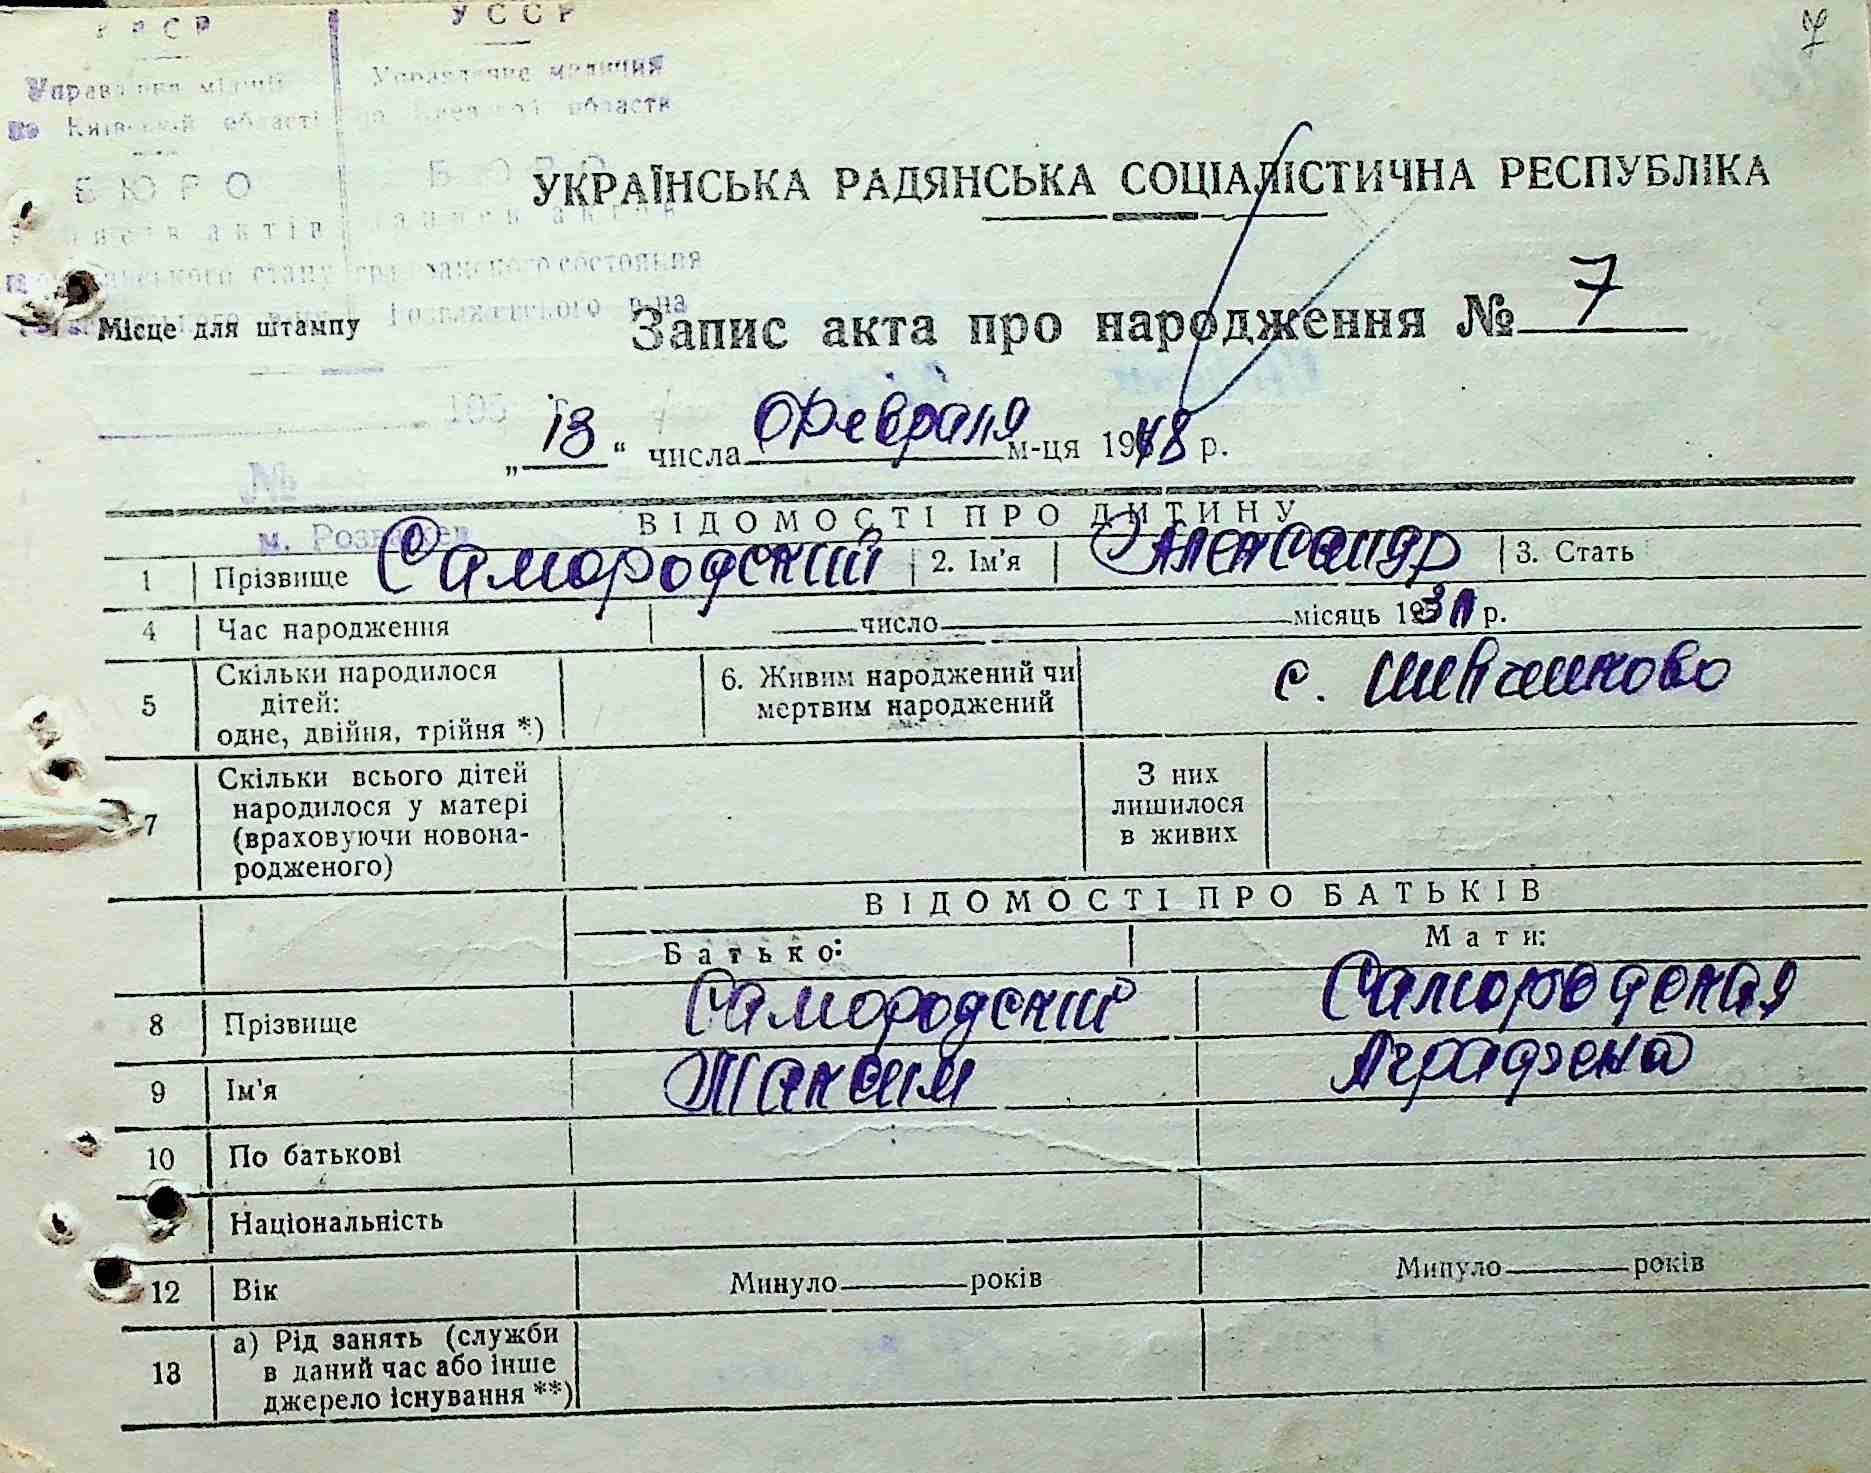 УРСР
УССР
7
Управління міліції
Управление милиции
по Київській області
по Киевской области
БЮРО
БЮРО
записів актів
записей актов
громадянського стану
гражданского состояния
Розважевского р-на
УКРАЇНСЬКА РАДЯНСЬКА СОЦІАЛІСТИЧНА РЕСПУБЛІКА
Місце для штампу
Запис акта про народження № 7
195 г.
„13“ числа Февраля м-ця 1948 р.
№
м. Розважев
ВІДОМОСТІ ПРО ДИТИНУ
1 Прізвище Самородский 2. Ім'я Александр 3. Стать
4 Час народження число місяць 1931 р.
5 Скільки народилося дітей: одне, двійня, трійня *) 6. Живим народжений чи мертвим народжений с.
7 Скільки всього дітей народилося у матері (враховуючи новонародженого) З них лишилося в живих
ВІДОМОСТІ ПРО БАТЬКІВ
Батько: Мати:
8 Прізвище Самородский Самородская
9 Ім'я Максим Аграфена
10 По батькові
Національність
12 Вік Минуло років Минуло років
13 а) Рід занять (служби в даний час або інше джерело існування **)